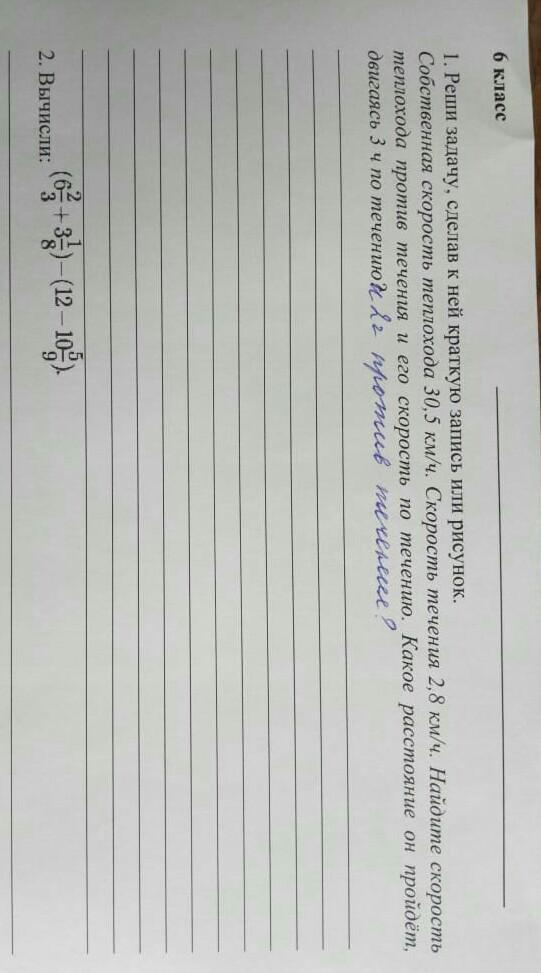 6 класс
1. Реши задачу, сделав к ней краткую запись или рисунок.
Собственная скорость теплохода 30,5 км/ч. Скорость течения 2,8 км/ч. Найдите скорость
теплохода против течения и его скорость по течению. Какое расстояние он пройдёт,
двигаясь 3 ч по течению и 2ч против течения?
2. Вычисли: (6 2/3 + 3 1/8) – (12 – 10 5/9).